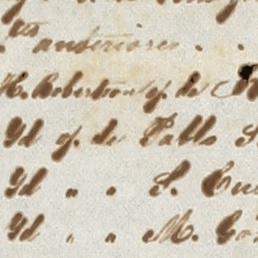 anteriores . .
M. Robertson y. de C
Yd y. de Pablo S
Yd " . S. Cu
Yd " . M. Go